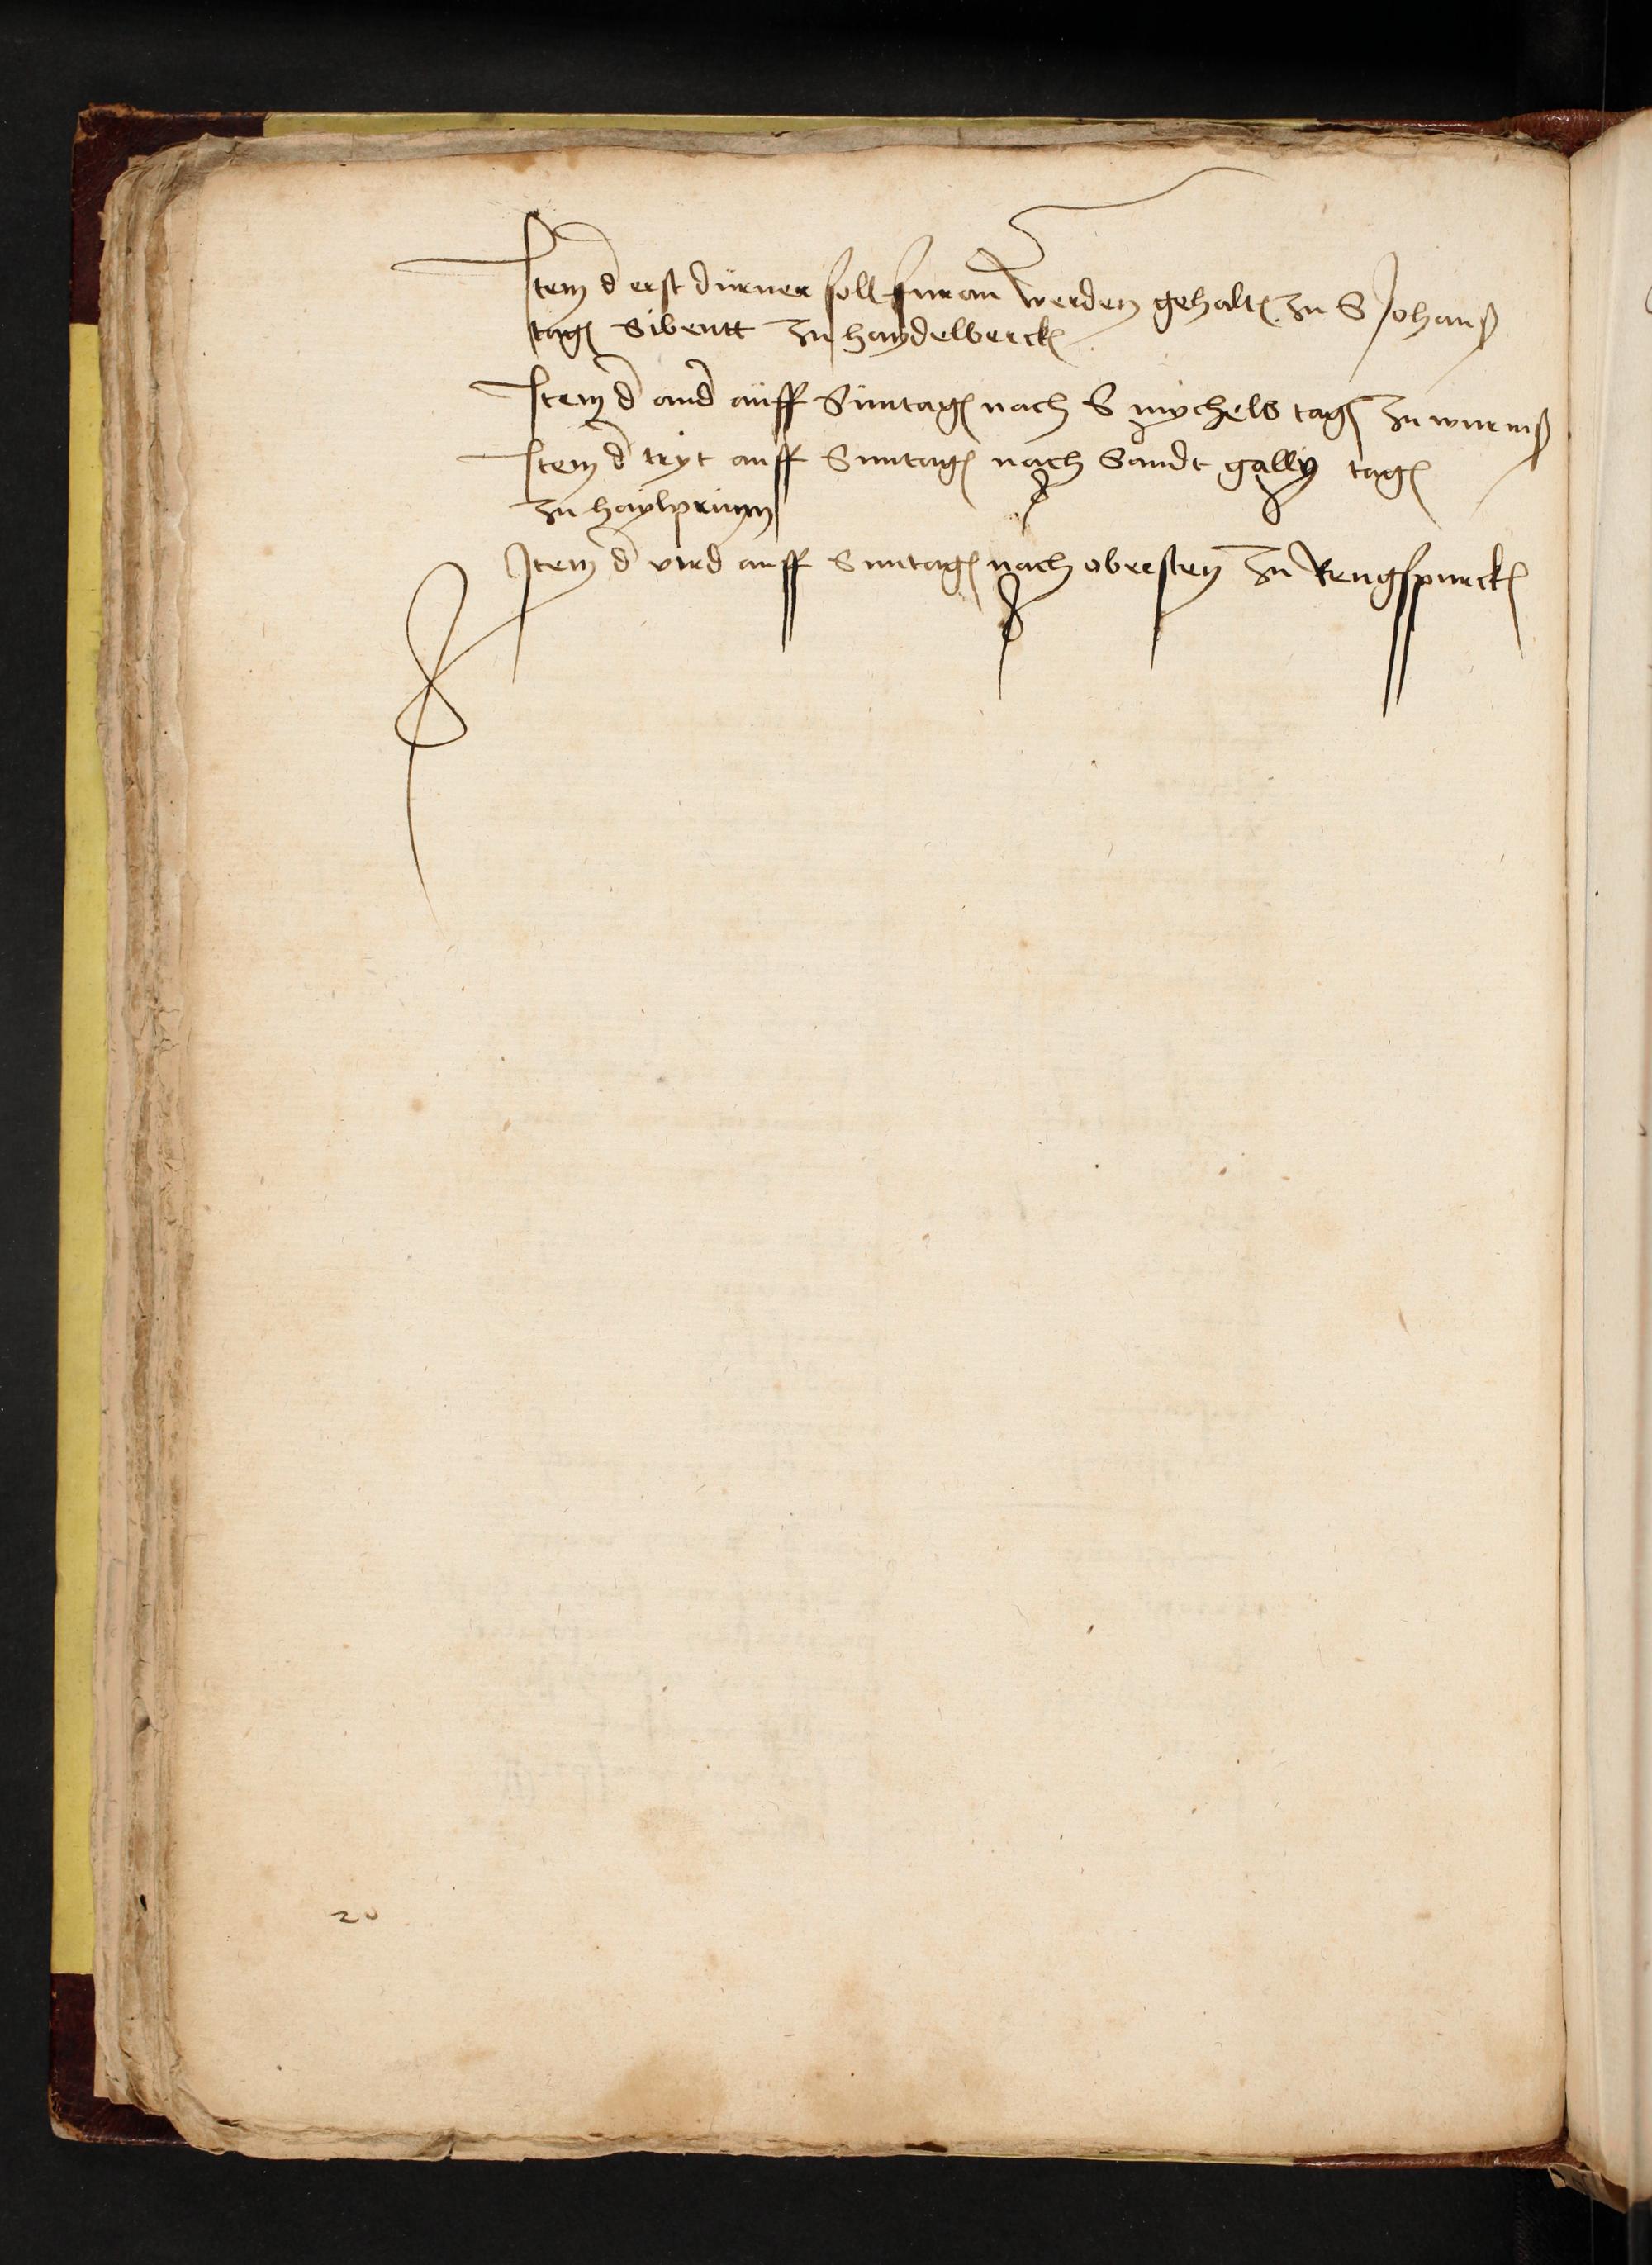 Item d erst dürner soll furan werden gehalt zu S Johanß
tag Sibentt zu haydelberck
Item d and auff Suntag nach S mychels tag zu wurmß
Item d tryt auff Suntag nach Sandt gally tag
zu haylprunn
Item d vird auff Suntag nach obersten zu Rengßpurck
20